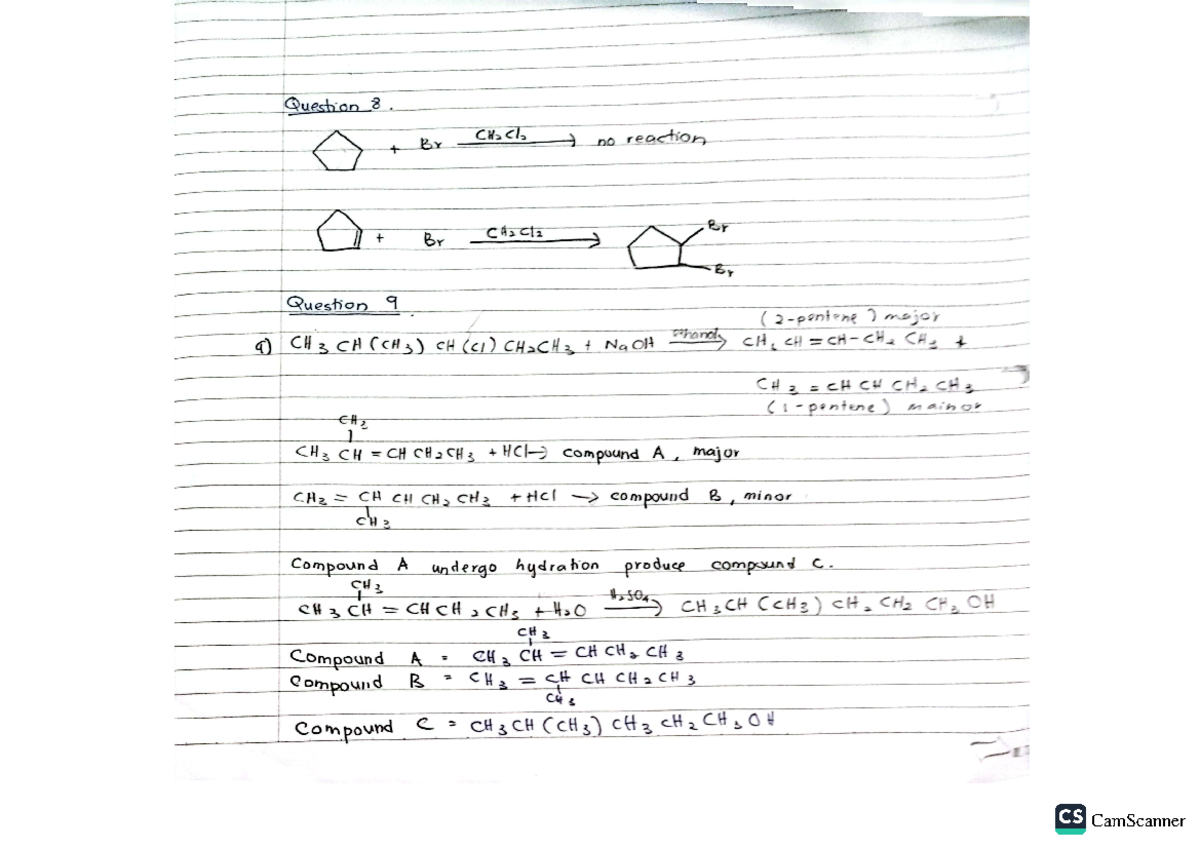 Question 8.
+ Br CH2Cl2 → no reaction
+ Br CH2Cl2 → Br
Br
Question 9
(2-pentene) major
a) CH3 CH(CH3) CH(Cl) CH2CH3 + NaOH ethanol → CH3 CH = CH-CH2 CH3 +
CH3 = CH CH CH2 CH3
(1-pentene) mainor
CH3
CH3 CH = CH CH2CH3 + HCl → compound A, major
CH3 = CH CH CH2 CH3 + HCl → compound B, minor
CH3
Compound A undergo hydration produce compound C.
CH3
CH3 CH = CH CH2 CH3 + H2O H2SO4 → CH3CH(CH3) CH2 CH2 CH2 OH
CH3
Compound A = CH3 CH = CH CH2 CH3
Compound B = CH3 = CH CH CH2 CH3
CH3
Compound C = CH3CH(CH3) CH2 CH2 CH2 OH
CS CamScanner